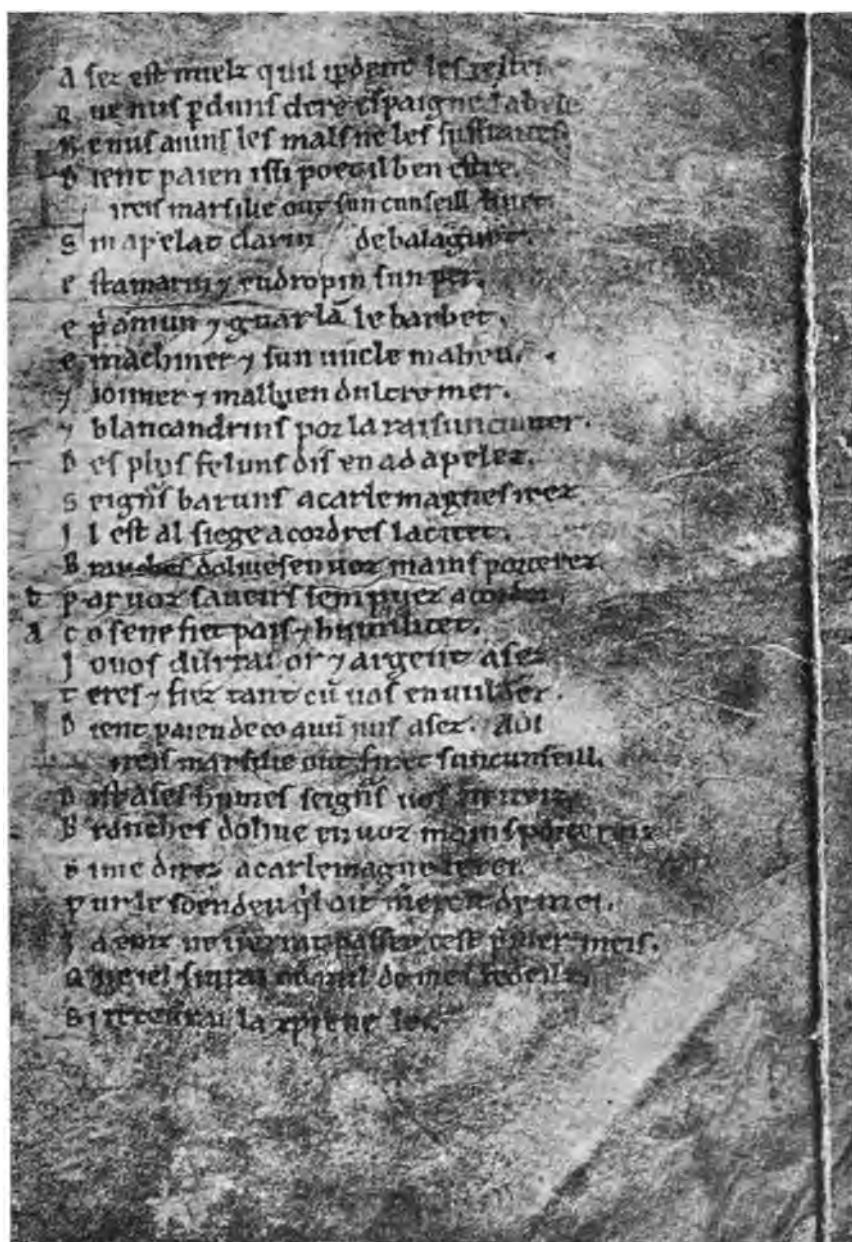 A sez est mielz q̃ uil ip̃dent les testes
q ue nus p̃duns clere espaigne la bele
N e nus aiuns les mals ne les suffraites
D ient paien issi poet il ben estre.
ireis marsilie out sun cunseill finet.
S in apelat clarin de balaguet.
e stamarin ⁊ eudropin sun per.
e p̃amun ⁊ guarlã le barbet.
e machiner ⁊ sun uncle maheu.
⁊ ioüner ⁊ malbien dultremer.
⁊ blancandrins por la raisun cunter.
D es plus feluns dis en ad apelez.
S eign̄s baruns a carlemagnes irez
I l est al siege a cordres la citet.
B ranches doliues en uoz mains porterez.
b p ar uoz saueirs sem puez acorder.
a c o senefiet pais ⁊ humilitet.
I o uos durrai or ⁊ argent asez
T eres ⁊ fiez tant cū uos en uuldrez.
D ient paien de co auū nus asez. Aoi
ireis marsilie out finet sun cunseill.
D ist a ses humes seign̄s uos en ireiz.
B ranches doliue en uoz mains portereiz
S i me direz a carlemagne le rei.
P ur le soen deu q̃l ait mercit de mei.
J a einz ne uerrat passer cest p̃mer meis.
Q ue iel siurai od mil de mes fedeilz.
S i receurai la xp̃iene lei.